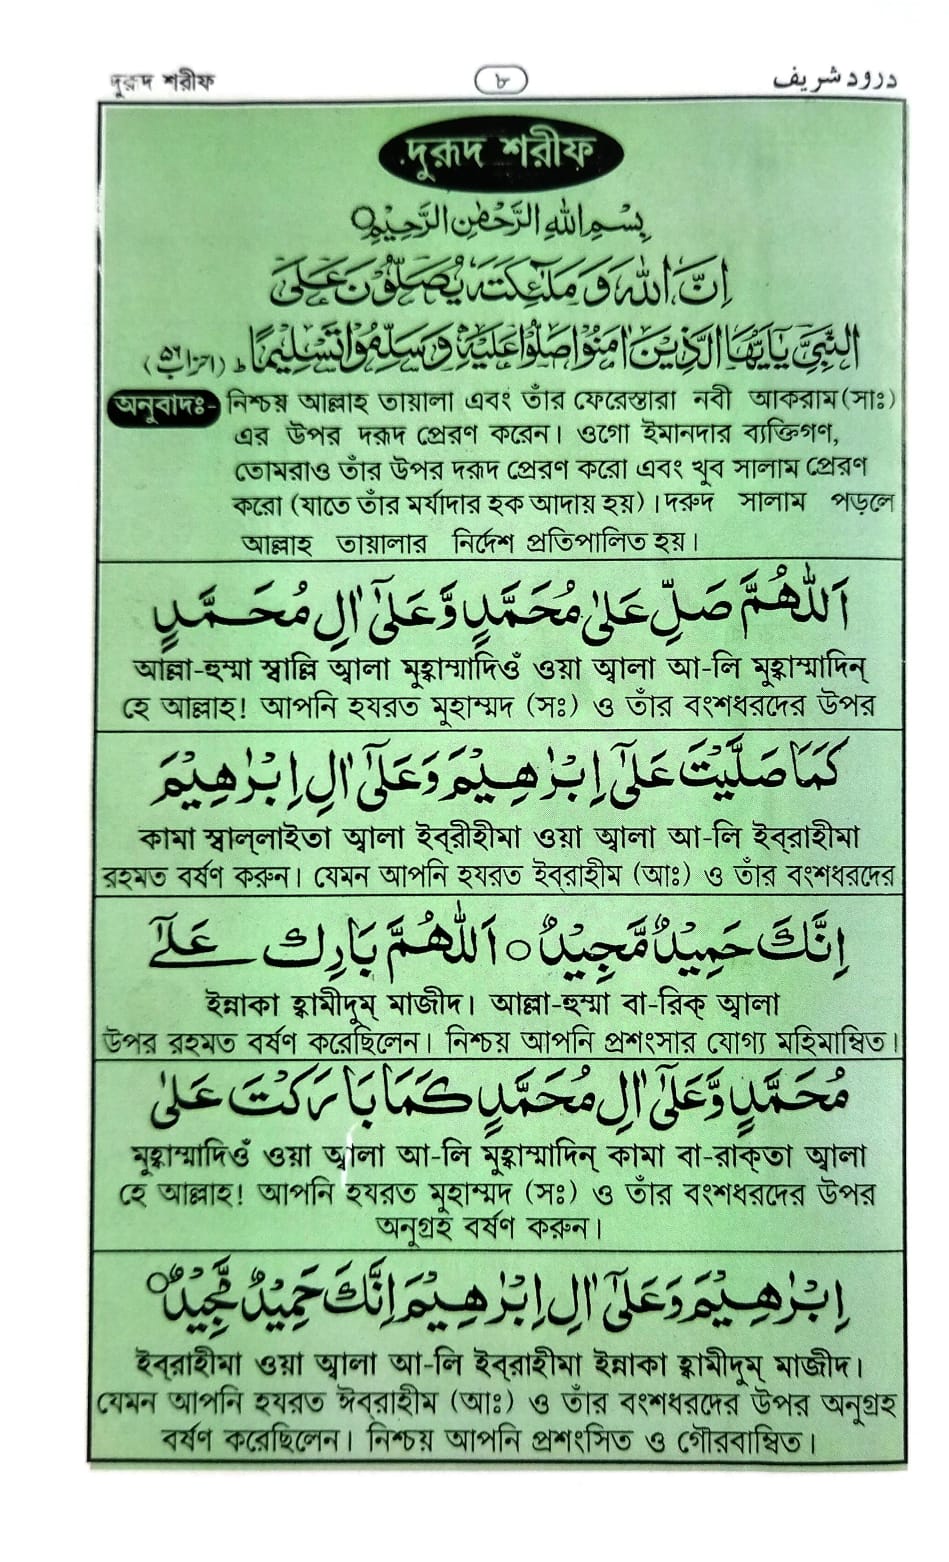 দুরূদ শরীফ ৮ درود شریف
দুরূদ শরীফ
بِسْمِ اللهِ الرَّحْمٰنِ الرَّحِيْمِ○
اِنَّ اللهَ وَ مَلٰٓئِكَتَهٗ يُصَلُّوْنَ عَلَى
النَّبِيِّ يٰٓاَيُّهَا الَّذِيْنَ اٰمَنُوْا صَلُّوْا عَلَيْهِ وَسَلِّمُوْا تَسْلِيْمًا ط (احزاب ৫৬)
অনুবাদঃ- নিশ্চয় আল্লাহ তায়ালা এবং তাঁর ফেরেস্তারা নবী আকরাম (সাঃ)
এর উপর দরূদ প্রেরণ করেন। ওগো ইমানদার ব্যক্তিগণ,
তোমরাও তাঁর উপর দরূদ প্রেরণ করো এবং খুব সালাম প্রেরণ
করো (যাতে তাঁর মর্যাদার হক আদায় হয়)। দরুদ সালাম পড়লে
আল্লাহ তায়ালার নির্দেশ প্রতিপালিত হয়।
اَللّٰهُمَّ صَلِّ عَلٰى مُحَمَّدٍ وَّعَلٰٓى اٰلِ مُحَمَّدٍ
আল্লা-হুম্মা স্বাল্লি আ্বালা মুহ্বাম্মাদিওঁ ওয়া আ্বালা আ-লি মুহ্বাম্মাদিন্
হে আল্লাহ! আপনি হযরত মুহাম্মদ (সঃ) ও তাঁর বংশধরদের উপর
كَمَا صَلَّيْتَ عَلٰٓى اِبْرٰهِيْمَ وَعَلٰٓى اٰلِ اِبْرٰهِيْمَ
কামা স্বাল্‌লাইতা আ্বালা ইব্‌রীহীমা ওয়া আ্বালা আ-লি ইব্‌রাহীমা
রহমত বর্ষণ করুন। যেমন আপনি হযরত ইব্‌রাহীম (আঃ) ও তাঁর বংশধরদের
اِنَّكَ حَمِيْدٌ مَّجِيْدٌ○ اَللّٰهُمَّ بَارِكْ عَلٰٓى
ইন্নাকা হ্বামীদুম্ মাজীদ। আল্লা-হুম্মা বা-রিক্ আ্বালা
উপর রহমত বর্ষণ করেছিলেন। নিশ্চয় আপনি প্রশংসার যোগ্য মহিমান্বিত।
مُحَمَّدٍ وَّعَلٰٓى اٰلِ مُحَمَّدٍ كَمَا بَارَكْتَ عَلٰى
মুহ্বাম্মাদিওঁ ওয়া আ্বালা আ-লি মুহ্বাম্মাদিন্ কামা বা-রাক্‌তা আ্বালা
হে আল্লাহ! আপনি হযরত মুহাম্মদ (সঃ) ও তাঁর বংশধরদের উপর
অনুগ্রহ বর্ষণ করুন।
اِبْرٰهِيْمَ وَعَلٰٓى اٰلِ اِبْرٰهِيْمَ اِنَّكَ حَمِيْدٌ مَّجِيْدٌ○
ইব্‌রাহীমা ওয়া আ্বালা আ-লি ইব্‌রাহীমা ইন্নাকা হ্বামীদুম্ মাজীদ।
যেমন আপনি হযরত ঈব্‌রাহীম (আঃ) ও তাঁর বংশধরদের উপর অনুগ্রহ
বর্ষণ করেছিলেন। নিশ্চয় আপনি প্রশংসিত ও গৌরবান্বিত।